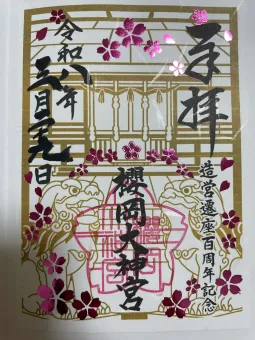 奉拝
造営遷座百周年記念
櫻岡大神宮
令和八年
三月九日